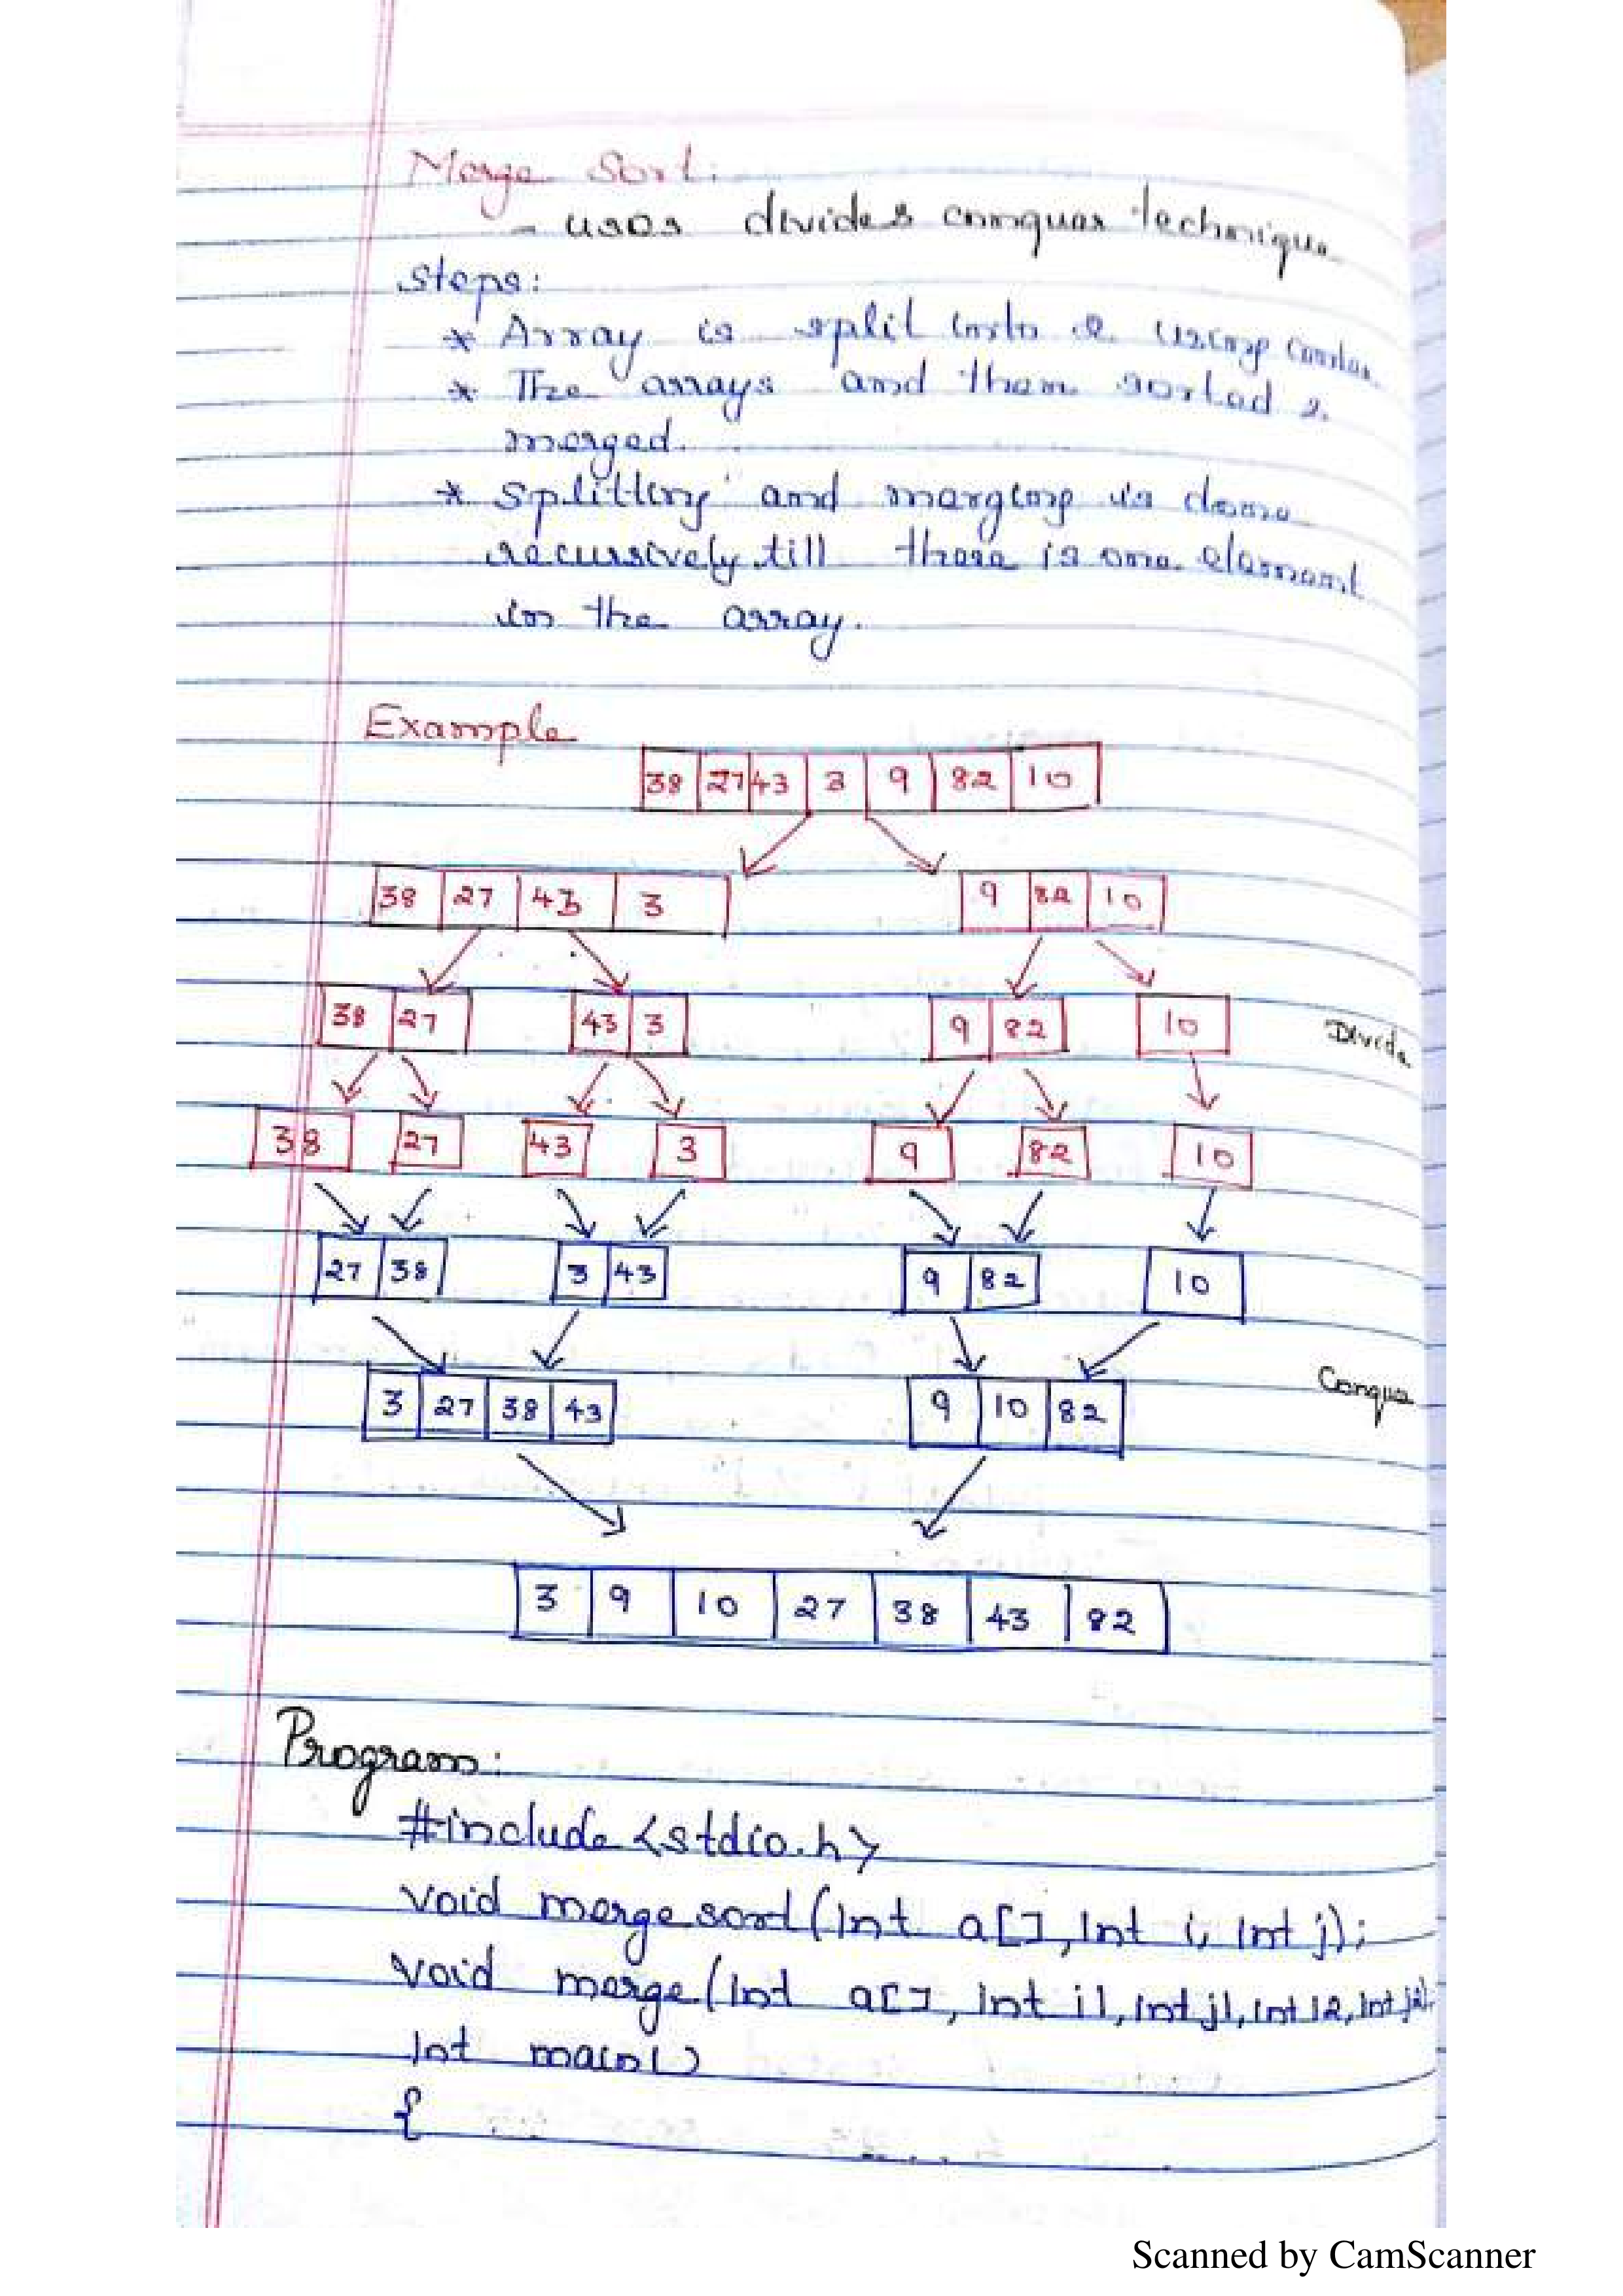 Merge Sort:
- uses divide & conquer technique
Steps:
* Array is split into 2 using center
* The arrays and then sorted &
merged.
* Splitting and merging is done
recursively till there is one element
in the array.
Example
38 27 43 3 9 82 10
38 27 43 3 9 82 10
38 27 43 3 9 82 10 Divide
38 27 43 3 9 82 10
27 38 3 43 9 82 10
Conque
3 27 38 43 9 10 82
3 9 10 27 38 43 82
Program:
#include <stdio.h>
void mergesort(int a[], int i, int j);
void merge(int a[], int i1, int j1, int i2, int j2)
int main()
{
Scanned by CamScanner